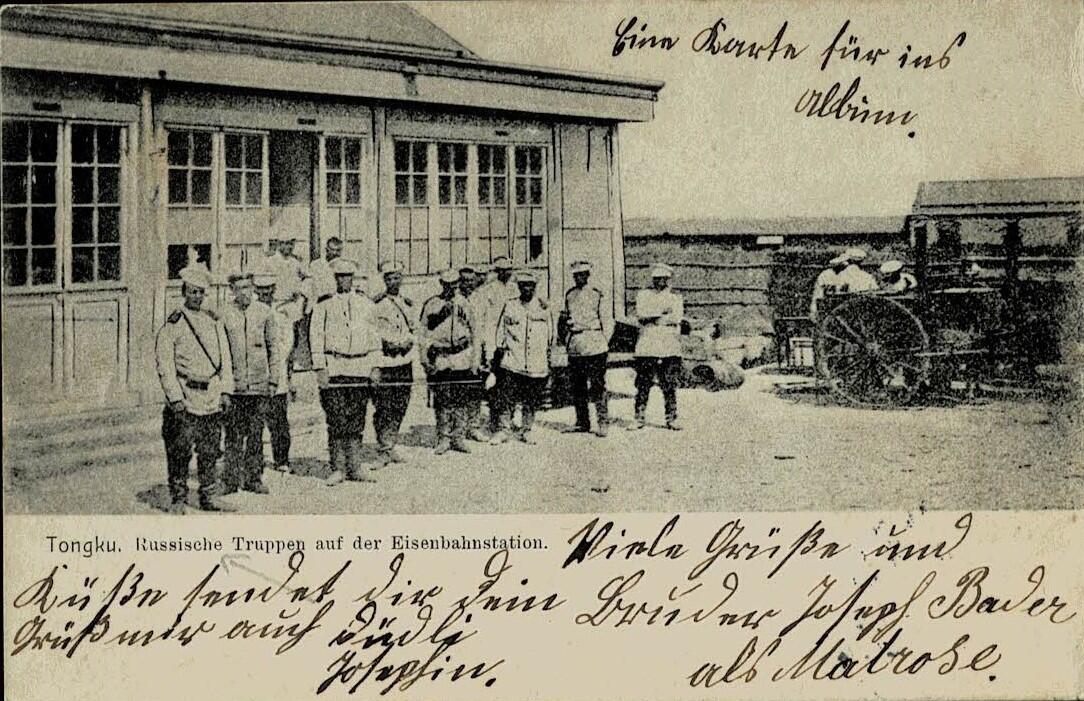 Eine Karte für ins
Album.
Tongku. Russische Truppen auf der Eisenbahnstation.
Viele Grüße und
Küße sendet dir dein Bruder Joseph Bader
als Matrose.
Grüß mir auch
Josephin.